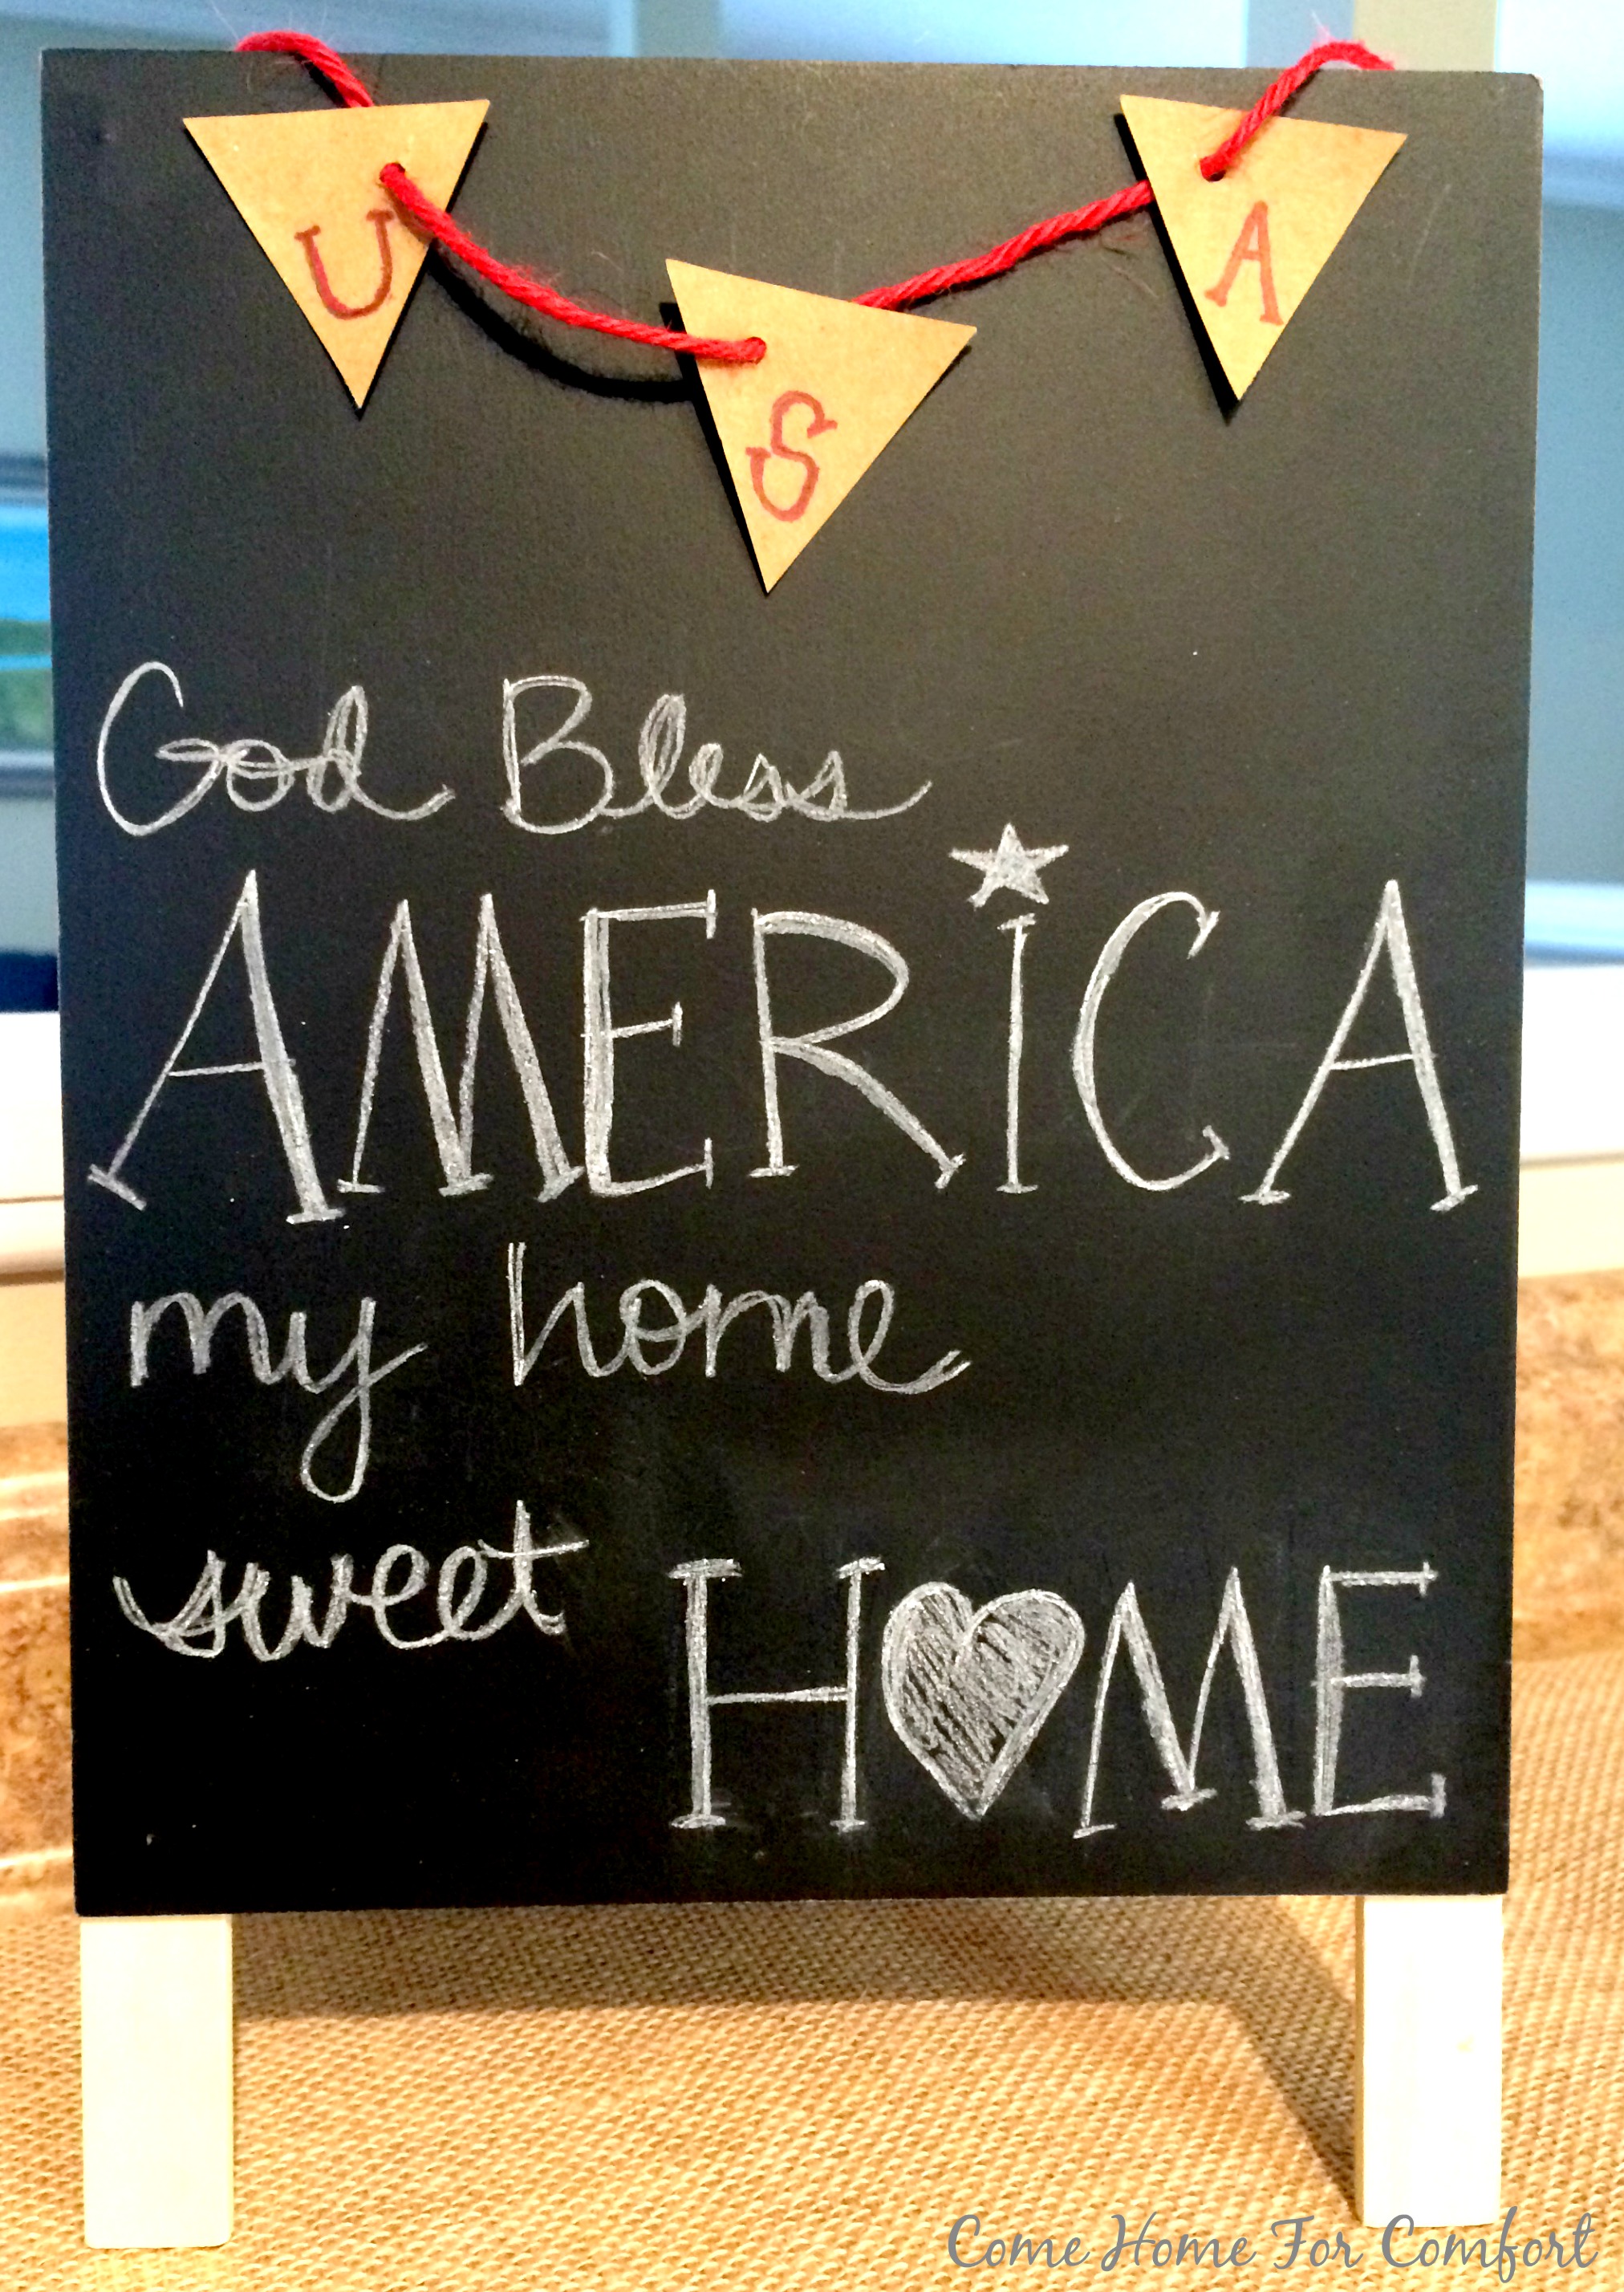 U S A
God Bless
AMERiCA
my home
sweet H♥ME
Come Home For Comfort